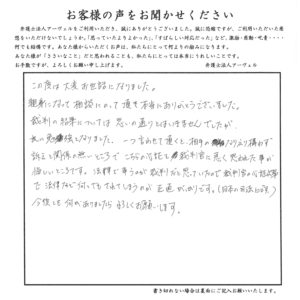 お客様の声をお聞かせください
弁護士法人アーヴェルをご利用いただき、誠にありがとうございました。誠に恐縮ですが、ご利用いただいた感
想をいただけないでしょうか。「思っていたよりよかった」、「すばらしい対応だった」など、激励・感動・叱責・・・・
何でも結構です。あなた様からいただくお声は、私たちにとって何よりの励みになります。
あなた様が「ささいなこと」だと思われることも、私たちにとっては本当にうれしいことです。
お手数ですが、よろしくお願い申し上げます。 弁護士法人アーヴェル
この度は大変お世話になりました。
親身になって相談にのって頂き本当にありがとうございました。
裁判の結果については思いの通りとはいきませんでしたが、
勉強となりました。一つ言わせて頂くと相手の なりふり構わず
訴えと関係の無いところで こちらの心証を 裁判官に悪く思われた事が
悔しいところです。法律で争うのが裁判だと思っていたので裁判官の心証次第
で法律など何とでもされてしまうのが 正直 がっかりです。(日本の司法に対して)
今後とも何かありましたら 宜しくお願いします。
書き切れない場合は裏面にご記入お願いいたします。